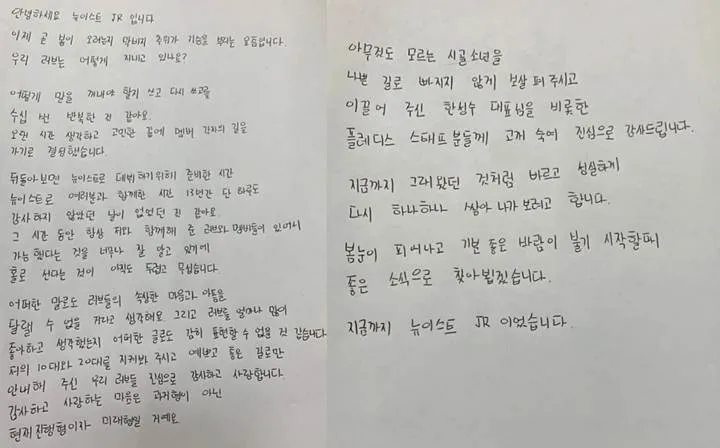 안녕하세요 뉴이스트 JR 입니다
이제 곧 봄이 오려는지 막바지 추위가 기승을 부리는 요즘입니다.
우리 러브는 어떻게 지내고 있나요?
어떻게 말을 꺼내야 할지 쓰고 다시 쓰고를
수십 번 반복한 것 같아요.
오랜 시간 생각하고 고민한 끝에 멤버 각자의 길을
가기로 결정했습니다.
뒤돌아보면 뉴이스트로 데뷔하기위해 준비한 시간
뉴이스트로 여러분과 함께한 시간 13년간 단 하루도
감사하지 않았던 날이 없었던 것 같아요.
그 시간 동안 항상 저와 함께해 준 러브와 멤버들이 있어서
가능했다는 것을 너무나 잘 알고 있기에
홀로 선다는 것이 아직도 두렵고 무섭습니다.
어떠한 말로도 러브들의 속상한 마음과 아픔을
달랠 수 없을 거라고 생각해요 그리고 러브를 얼마나 많이
좋아하고 생각했는지 어떠한 글로도 감히 표현할 수 없을 것 같습니다
저의 10대와 20대를 지켜봐 주시고 예쁘고 좋은 길로만
안내해 주신 우리 러브들 진심으로 감사하고 사랑합니다.
감사하고 사랑하는 마음은 과거형이 아닌
현재진행형이자 미래형일 거예요
아무것도 모르는 시골소년을
나쁜 길로 빠지지 않게 보살펴 주시고
이끌어 주신 한성수 대표님을 비롯한
플레디스 스태프분들께 고개 숙여 진심으로 감사드립니다.
지금까지 그래왔던 것처럼 바르고 성실하게
다시 하나하나 쌓아 나가 보려고 합니다.
봄눈이 피어나고 기분 좋은 바람이 불기 시작할때
좋은 소식으로 찾아뵙겠습니다.
지금까지 뉴이스트 JR 이었습니다.